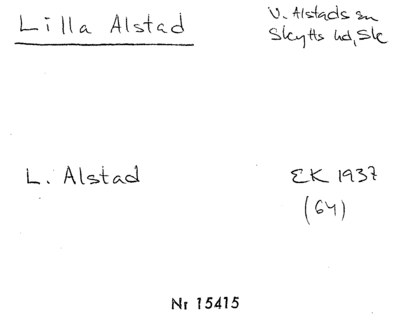 Lilla Alstad
V. Alstads sn
Skytts hd, Sk
L. Alstad
EK 1937
(64)
Nr 15415